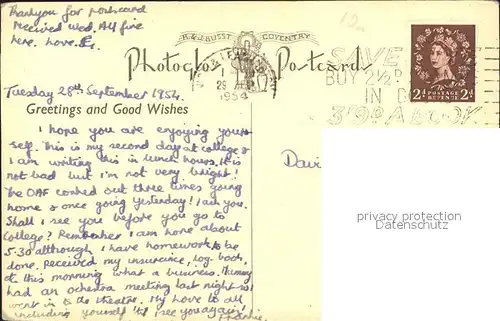 Thankyou for postcard
Received Wed. All fine
here. Love
B. & J. BUSST COVENTRY
Photoglo Postcards
29
1954
SAVE
BUY 2½D
IN
3'9D A BOOK
2D POSTAGE REVENUE 2D
Tuesday 28th September 1954.
Greetings and Good Wishes
I hope you are enjoying your-
self. This is my second day at college &
I am writing this in lunch hours. It is
not bad but I'm not very bright!
The OAF conked out three times going
home & once going yesterday! I ask you.
Shall I see you before you go to
College? Remember I am home about
5-30 although I have homework to be
done. Received my insurance, Log-book,
etc. this morning what a business. Mummy
had an orchestra meeting last night so I
went in to the theatre. My love to all
including yourself 'til I see you again!
Davi
privacy protection
www.oldthing.com